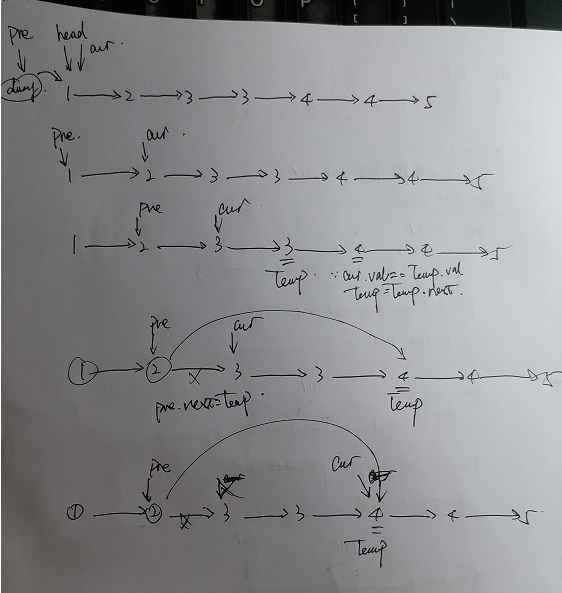 pre head cur.
dump 1 → 2 → 3 → 3 → 4 → 4 → 5
pre. cur.
1 → 2 → 3 → 3 → 4 → 4 → 5
pre cur
1 → 2 → 3 → 3 → 4 → 4 → 5
Temp. ∵ cur.val == Temp.val
Temp = Temp.next.
pre cur
① → ② → 3 → 3 → 4 → 4 → 5
x
pre.next = Temp. Temp
pre cur
① → ② → 3 → 3 → 4 → 4 → 5
x
Temp